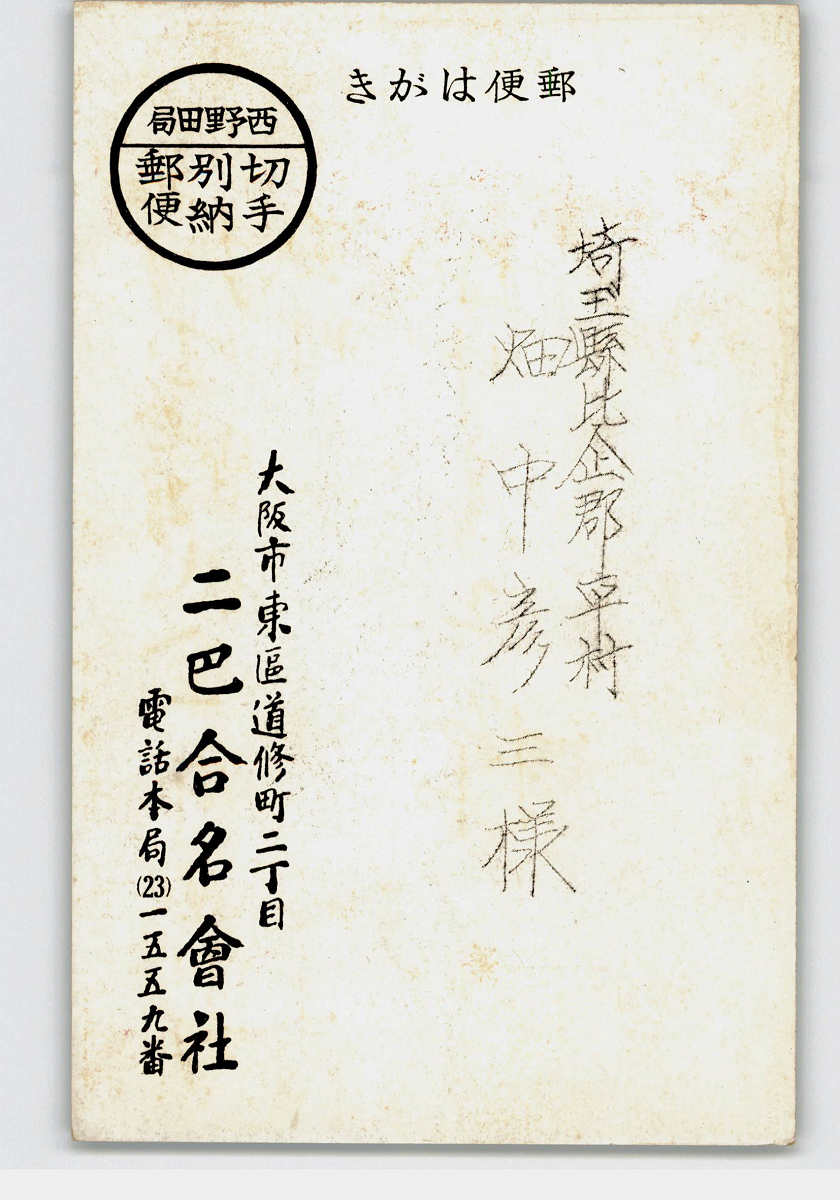 郵便はがき
西野田局
切手
別納
郵便
埼玉縣比企郡 村
畑中彦三様
大阪市東區道修町二丁目
二巴合名會社
電話本局(23)一五五九番